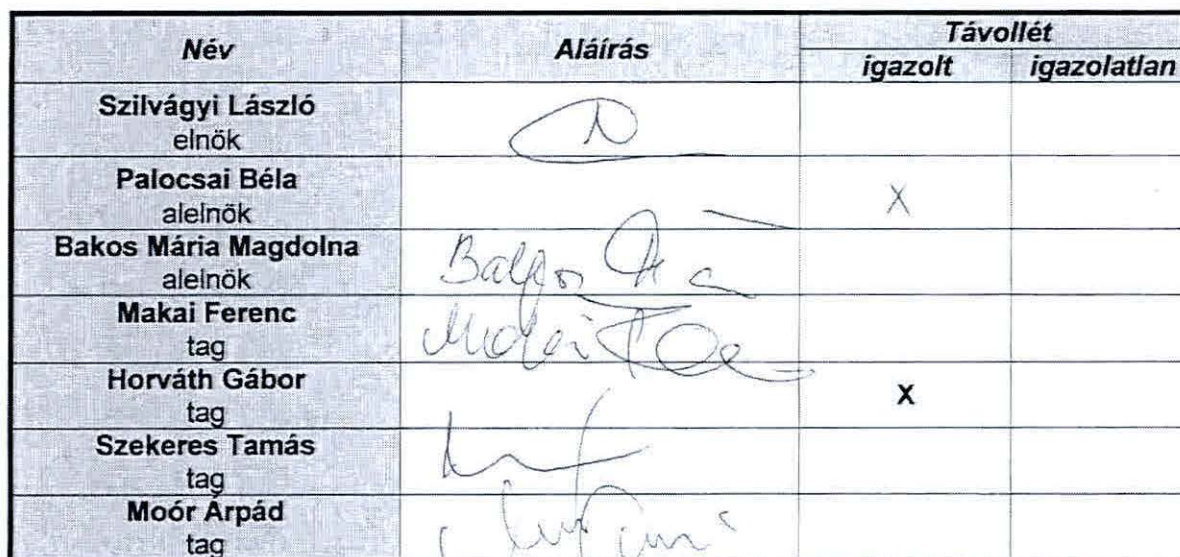 Név Aláírás Távollét
igazolt igazolatlan
Szilvágyi László
elnök
Palocsai Béla
alelnök X
Bakos Mária Magdolna
alelnök
Makai Ferenc
tag
Horváth Gábor
tag X
Szekeres Tamás
tag
Moór Árpád
tag